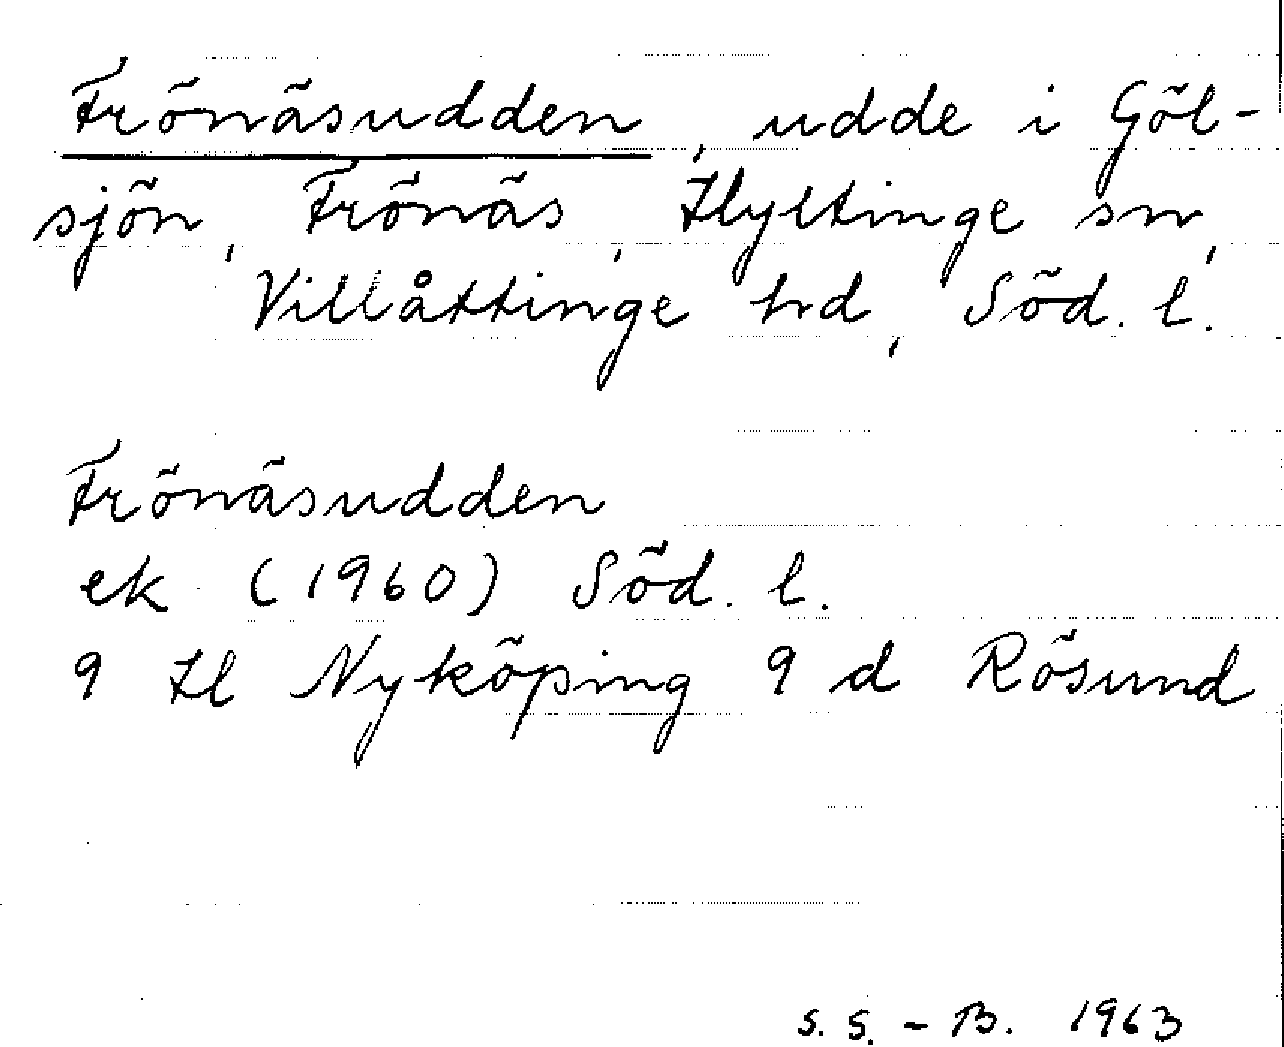 Frönäsudden, udde i Göl-
sjön, Frönäs, Hyltinge sn,
Villåttinge hd, Söd. l.
Frönäsudden
ek (1960) Söd. l.
9 H Nyköping 9 d Rösund
S. S. - B. 1963